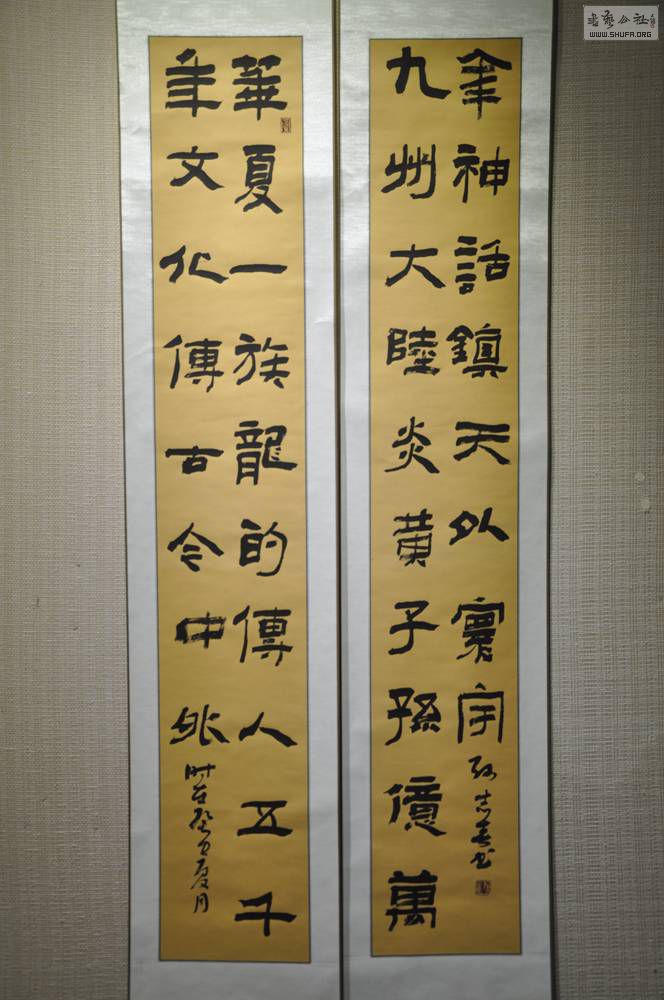 華夏一族龍的傳人五千
年文化傳古今中外
時在癸巳夏月
九州大陸炎黃子孫億萬
年神話鎮天外寰宇
書藝公社
WWW.SHUFA.ORG